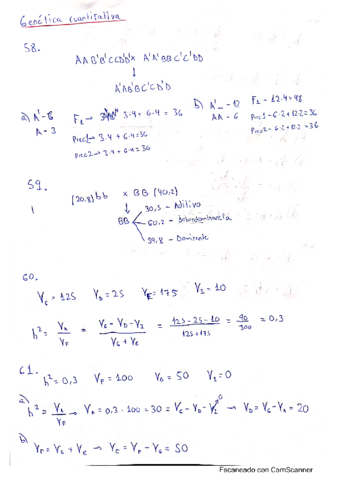 Genética cuantitativa
58.
AAB'B'CCDD x A'A'BBC'C'DD
↓
A'AB'BC'CD'D
a) A' - 6
A - 3
F₁ → 3·4 + 6·4 = 36
Prec1 → 3·4 + 6·4 = 36
Prec2 → 3·4 + 6·4 = 36
b) A'_ - 12
AA - 6
F1 - 12·4 = 48
Prec1 - 6·2 + 12·2 = 36
Prec2 - 6·2 + 12·2 = 36
59.
(20,8) bb x BB (40,2)
↓
30,5 - Aditivo
60,2 - Sobredominancia
59,8 - Dominante
60.
V_G = 125 V_D = 25 V_E = 175 V_I = 10
h² = V_A / V_F = (V_G - V_D - V_I) / (V_G + V_E) = (125 - 25 - 10) / (125 + 175) = 90 / 300 = 0,3
61.
h² = 0,3 V_F = 100 V_G = 50 V_I = 0
a)
h² = V_A / V_F → V_A = 0,3 · 100 = 30 = V_G - V_D - V_I⁰ → V_D = V_G - V_A = 20
b)
V_F = V_G + V_E → V_E = V_F - V_G = 50
Escaneado con CamScanner